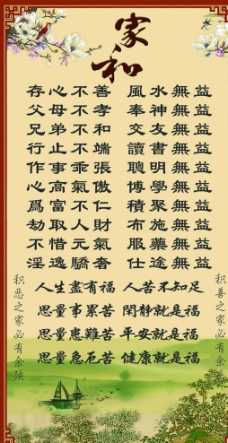 家和
存心不善 風水無益
父母不孝 奉神無益
兄弟不和 交友無益
行止不端 讀書無益
作事乖張 聰明無益
心高氣傲 博學無益
爲富不仁 積聚無益
劫取人財 布施無益
不惜元氣 服藥無益
淫逸驕奢 仕途無益
人生盡有福 人苦不知足
思量事累苦 閑靜就是福
思量患難苦 平安就是福
思量急厄苦 健康就是福
积善之家必有余
积恶之家必有余殃